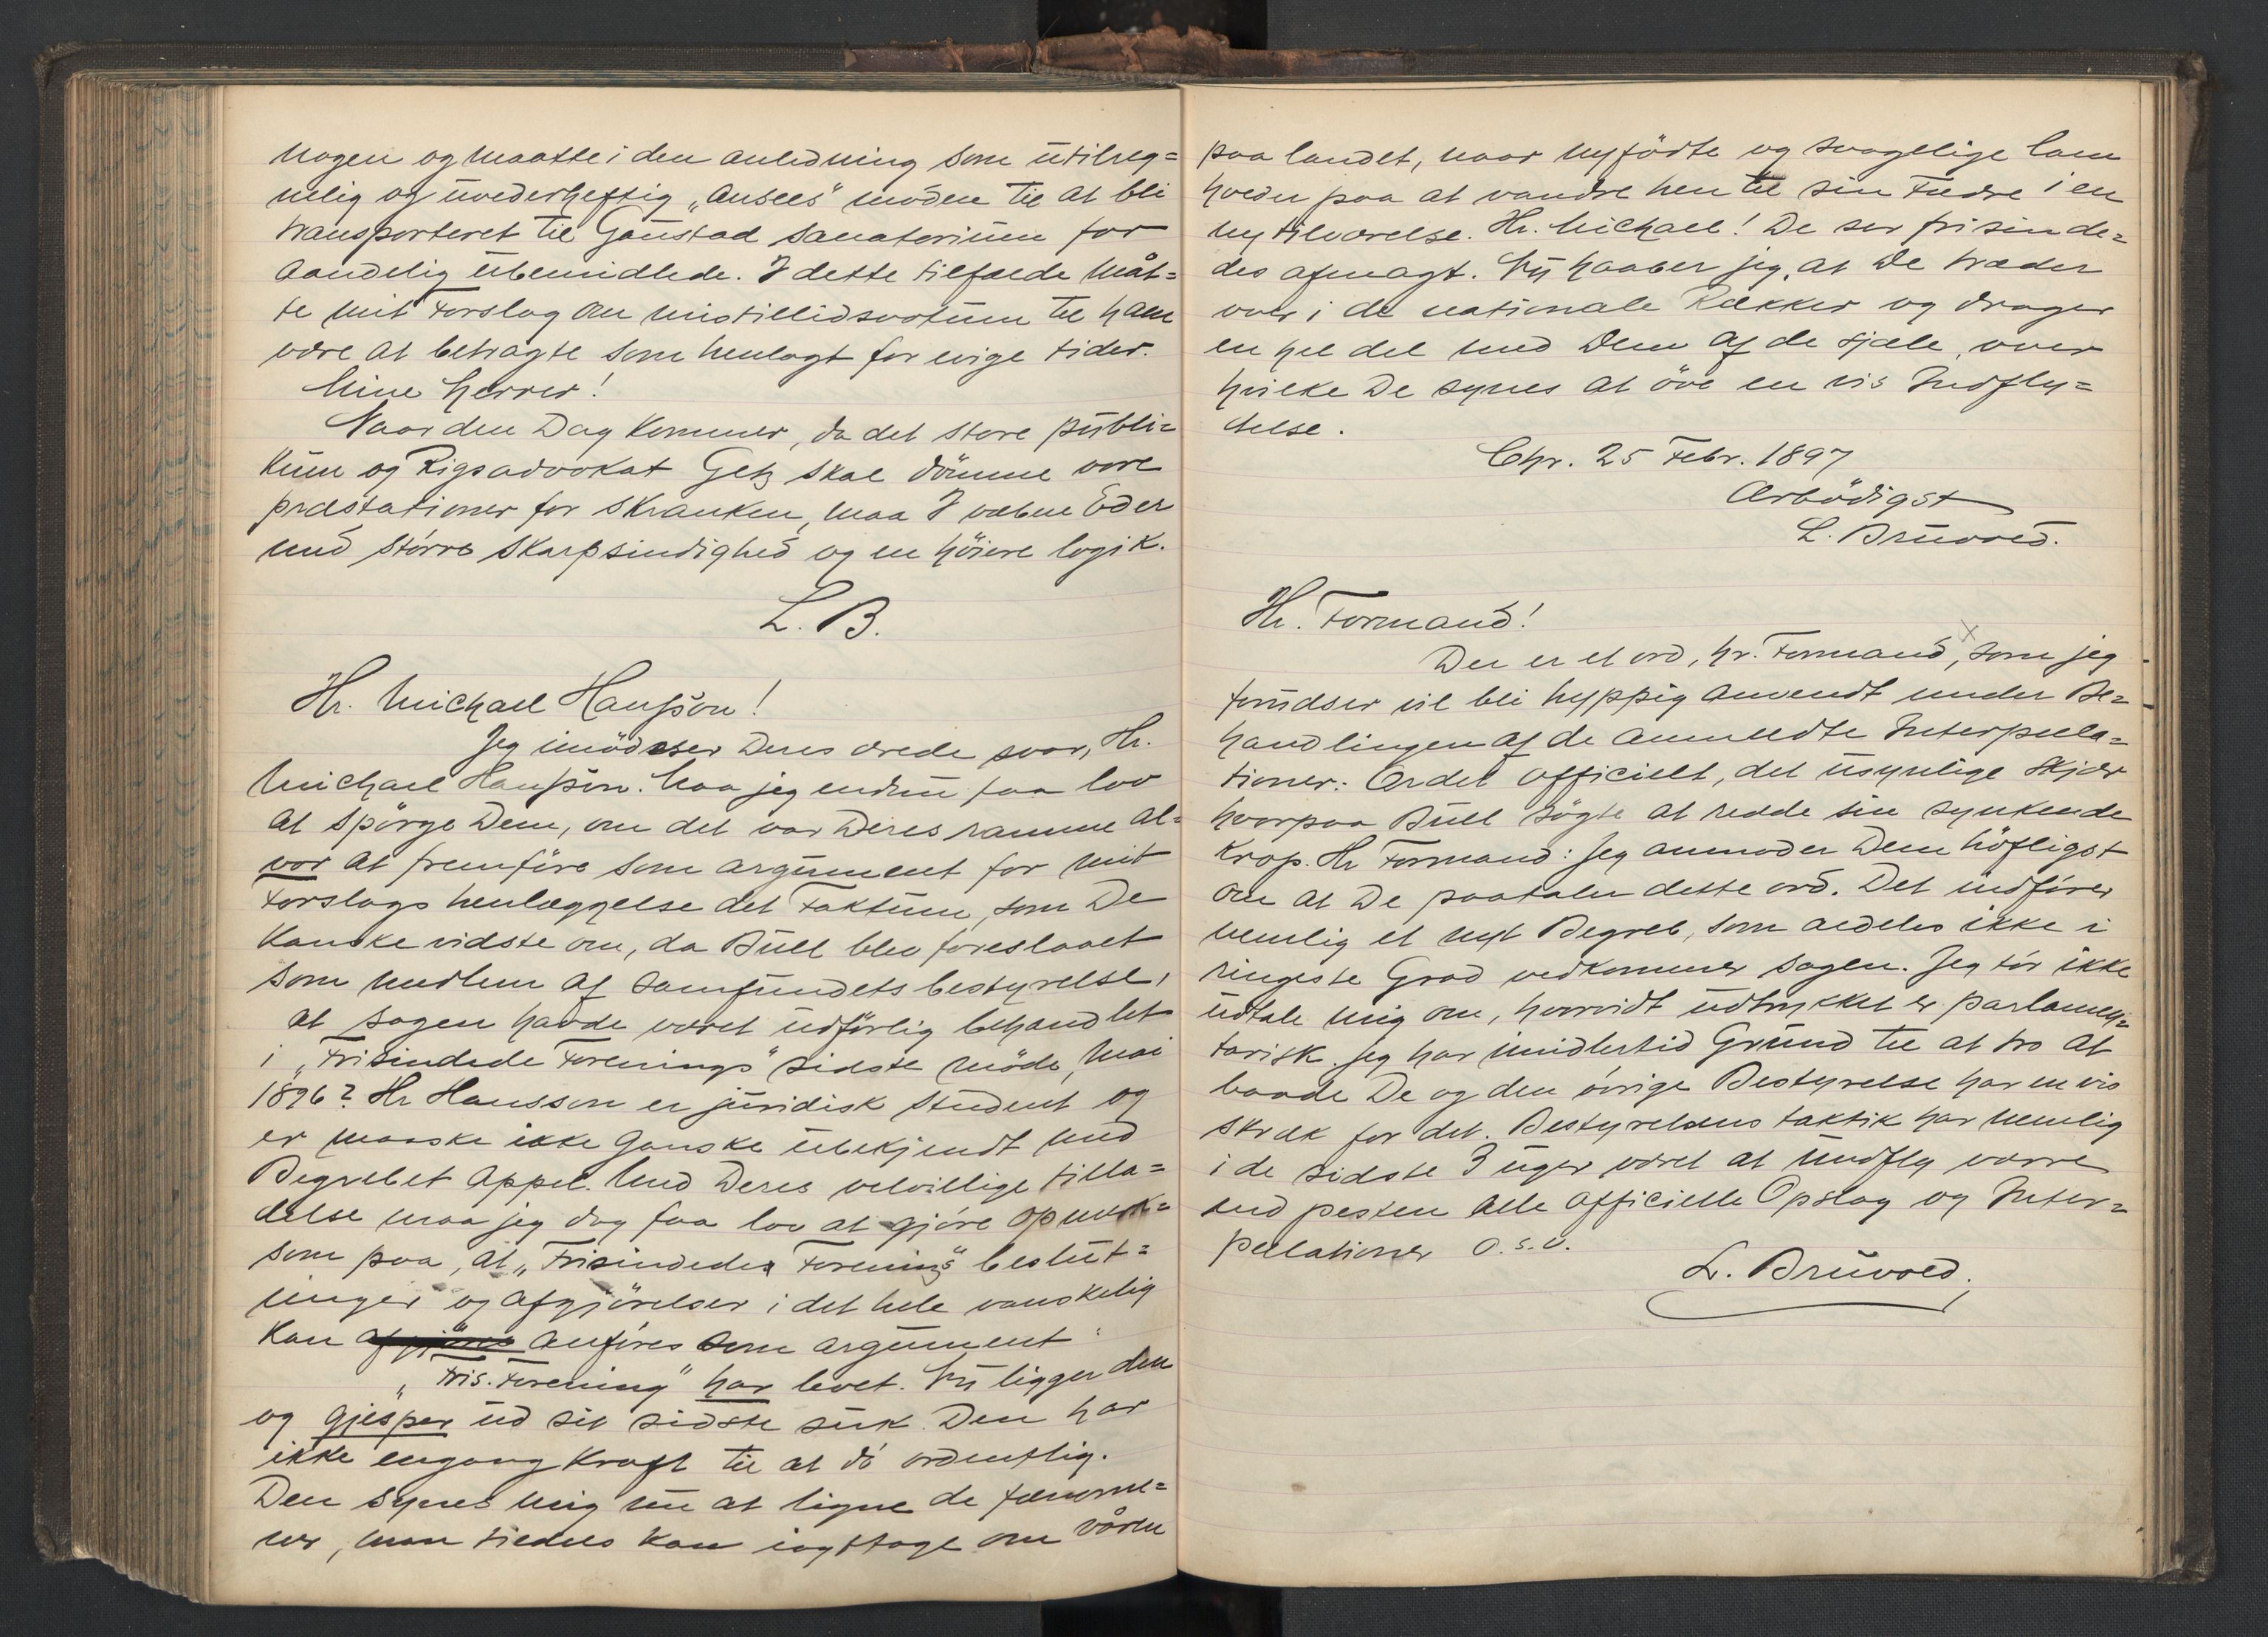 nogen og maatte i den anledning som utilreg=
nelig og uvederheftig „ansees" moden til at bli
transporteret til Gaustad sanatorium for
aandelig ubemidlede. I dette tilfælde måt=
te mit Forslag om mistillidsvotum til ham
være at betragte som henlagt for evige tider.
Mine herrer!
Naar den Dag kommer, da det store publi=
kum og Rigsadvokat Getz skal dömme vore
præstationer for skranken, maa I væbne Eder
med större skarpsindighed og en höiere logik.
L. B.
Hr. Michael Hansson!
Jeg imödeser Deres ærede svar, Hr.
Michael Hansson. Maa jeg endnu faa lov
at spörge Dem, om det var Deres ramme al=
vor at fremföre som argument for mit
Forslags henlæggelse det Faktum, som De
kanske vidste om, da Bull blev foreslaaet
som medlem af Samfundets bestyrelse,
at sagen havde været udförlig behandlet
i „Frisindede Forenings" sidste möde, mai
1896? Hr Hansson er juridisk student og
er maaske ikke ganske ubekjendt med
Begrebet appel. Med Deres velvillige tilla=
delse maa jeg dog faa lov at gjöre opmærk=
som paa, at „Frisindedes Forening's" beslut=
ninger og afgjörelser i det hele vanskelig
kan afgjöres anföres som argument.
„Fris. Forening" har levet. Nu ligger den
og gjesper ud sit sidste suk. Den har
ikke engang Kraft til at dö ordentlig.
Den synes mig nu at ligne de fænome=
ner, man tiedels kan iagttage om våren
paa landet, naar nyfödte og svagelige lam
holder paa at vandre hen til sine Fædre i en
ny tilværelse. Hr. Michael! De ser frisinde=
des afmagt. Nu haaber jeg, at De træder
over i de nationale Rækker og drager
en hel del med Dem af de sjæle, over
hvilke De synes at öve en vis Indfly=
delse.
Chr. 25 Febr. 1897
Ærbödigst
L. Bruvold.
Hr. Formand!
Der er et ord, hr. Formand, som jeg
forudser vil bli hyppig anvendt under Be=
handlingen af de anmeldte Interpella=
tioner: Ordet officielt, det usynlige skjær
hvorpaa Bull sögte at redde sin synkende
krop. Hr Formand: Jeg anmoder Dem höfligst
om at De paataler dette ord. Det indförer
nemlig et nyt Begreb, som aldeles ikke i
ringeste Grad vedkommer sagen. Jeg tör ikke
udtale mig om, hvorvidt udtrykket er parlamen=
tarisk. Jeg har imidlertid Grund til at tro at
baade De og den övrige Bestyrelse har en vis
skræk for det. Bestyrelsens taktik har nemlig
i de sidste 3 uger været at undfly værre
end pesten alle officielle Opslag og Inter=
pellationer o.s.v.
L. Bruvold.